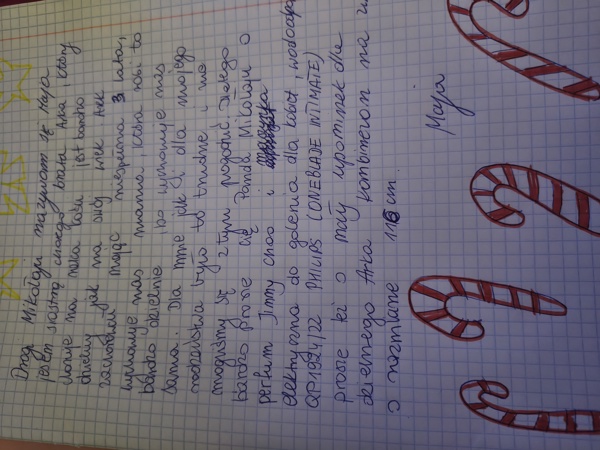 Drogi Mikołaju nazywam się Maja
jestem siostrą chorego brata Arka, który
choruje na raka. Arka jest bardzo
dzielny jak na swój wiek Arek
zachorował mając niespełna 3 lata,
wychowuje nas mama, która robi to
bardzo dzielnie bo wychowuje nas
sama. Dla mnie jak i dla mojego
rodzeństwa było to trudne i nie
mogliśmy się z tym pogodzić dlatego
bardzo proszę cię Panie Mikołaju o
perfum Jimmy choo i maszynka
elektryczna do golenia dla kobiet,
QP1924/22 PHILIPS (ONEBLADE INTIMATE)
proszę też o mały upominek dla
dzielnego Arka kombinezon na
o rozmiarze 116 cm.
Maja